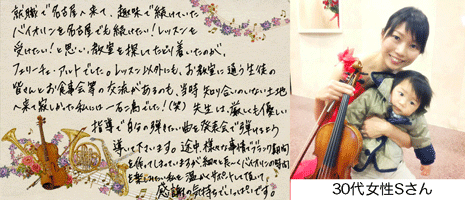 就職で名古屋へ来て、趣味で続けていた
バイオリンを名古屋でも続けたい！レッスンを
受けたい！と思い、教室を探してたどり着いたのが、
フェリーチェ・アットでした。レッスン以外にも、お教室に通う生徒の
皆さんとお食事会等の交流があるのも、当時知り合いのいない土地
へ来て寂しかった私には一石二鳥でした！（笑）先生は、厳しくも優しい
指導で自分の弾きたい曲を発表会で弾けるよう
導いて下さいます。途中、様々な事情でブランク期間
を作ってしまっていますが、細々と長〜くバイオリンの時間
を楽しみたい私を温かくサポートして頂いて
感謝の気持ちでいっぱいです。
30代女性Sさん